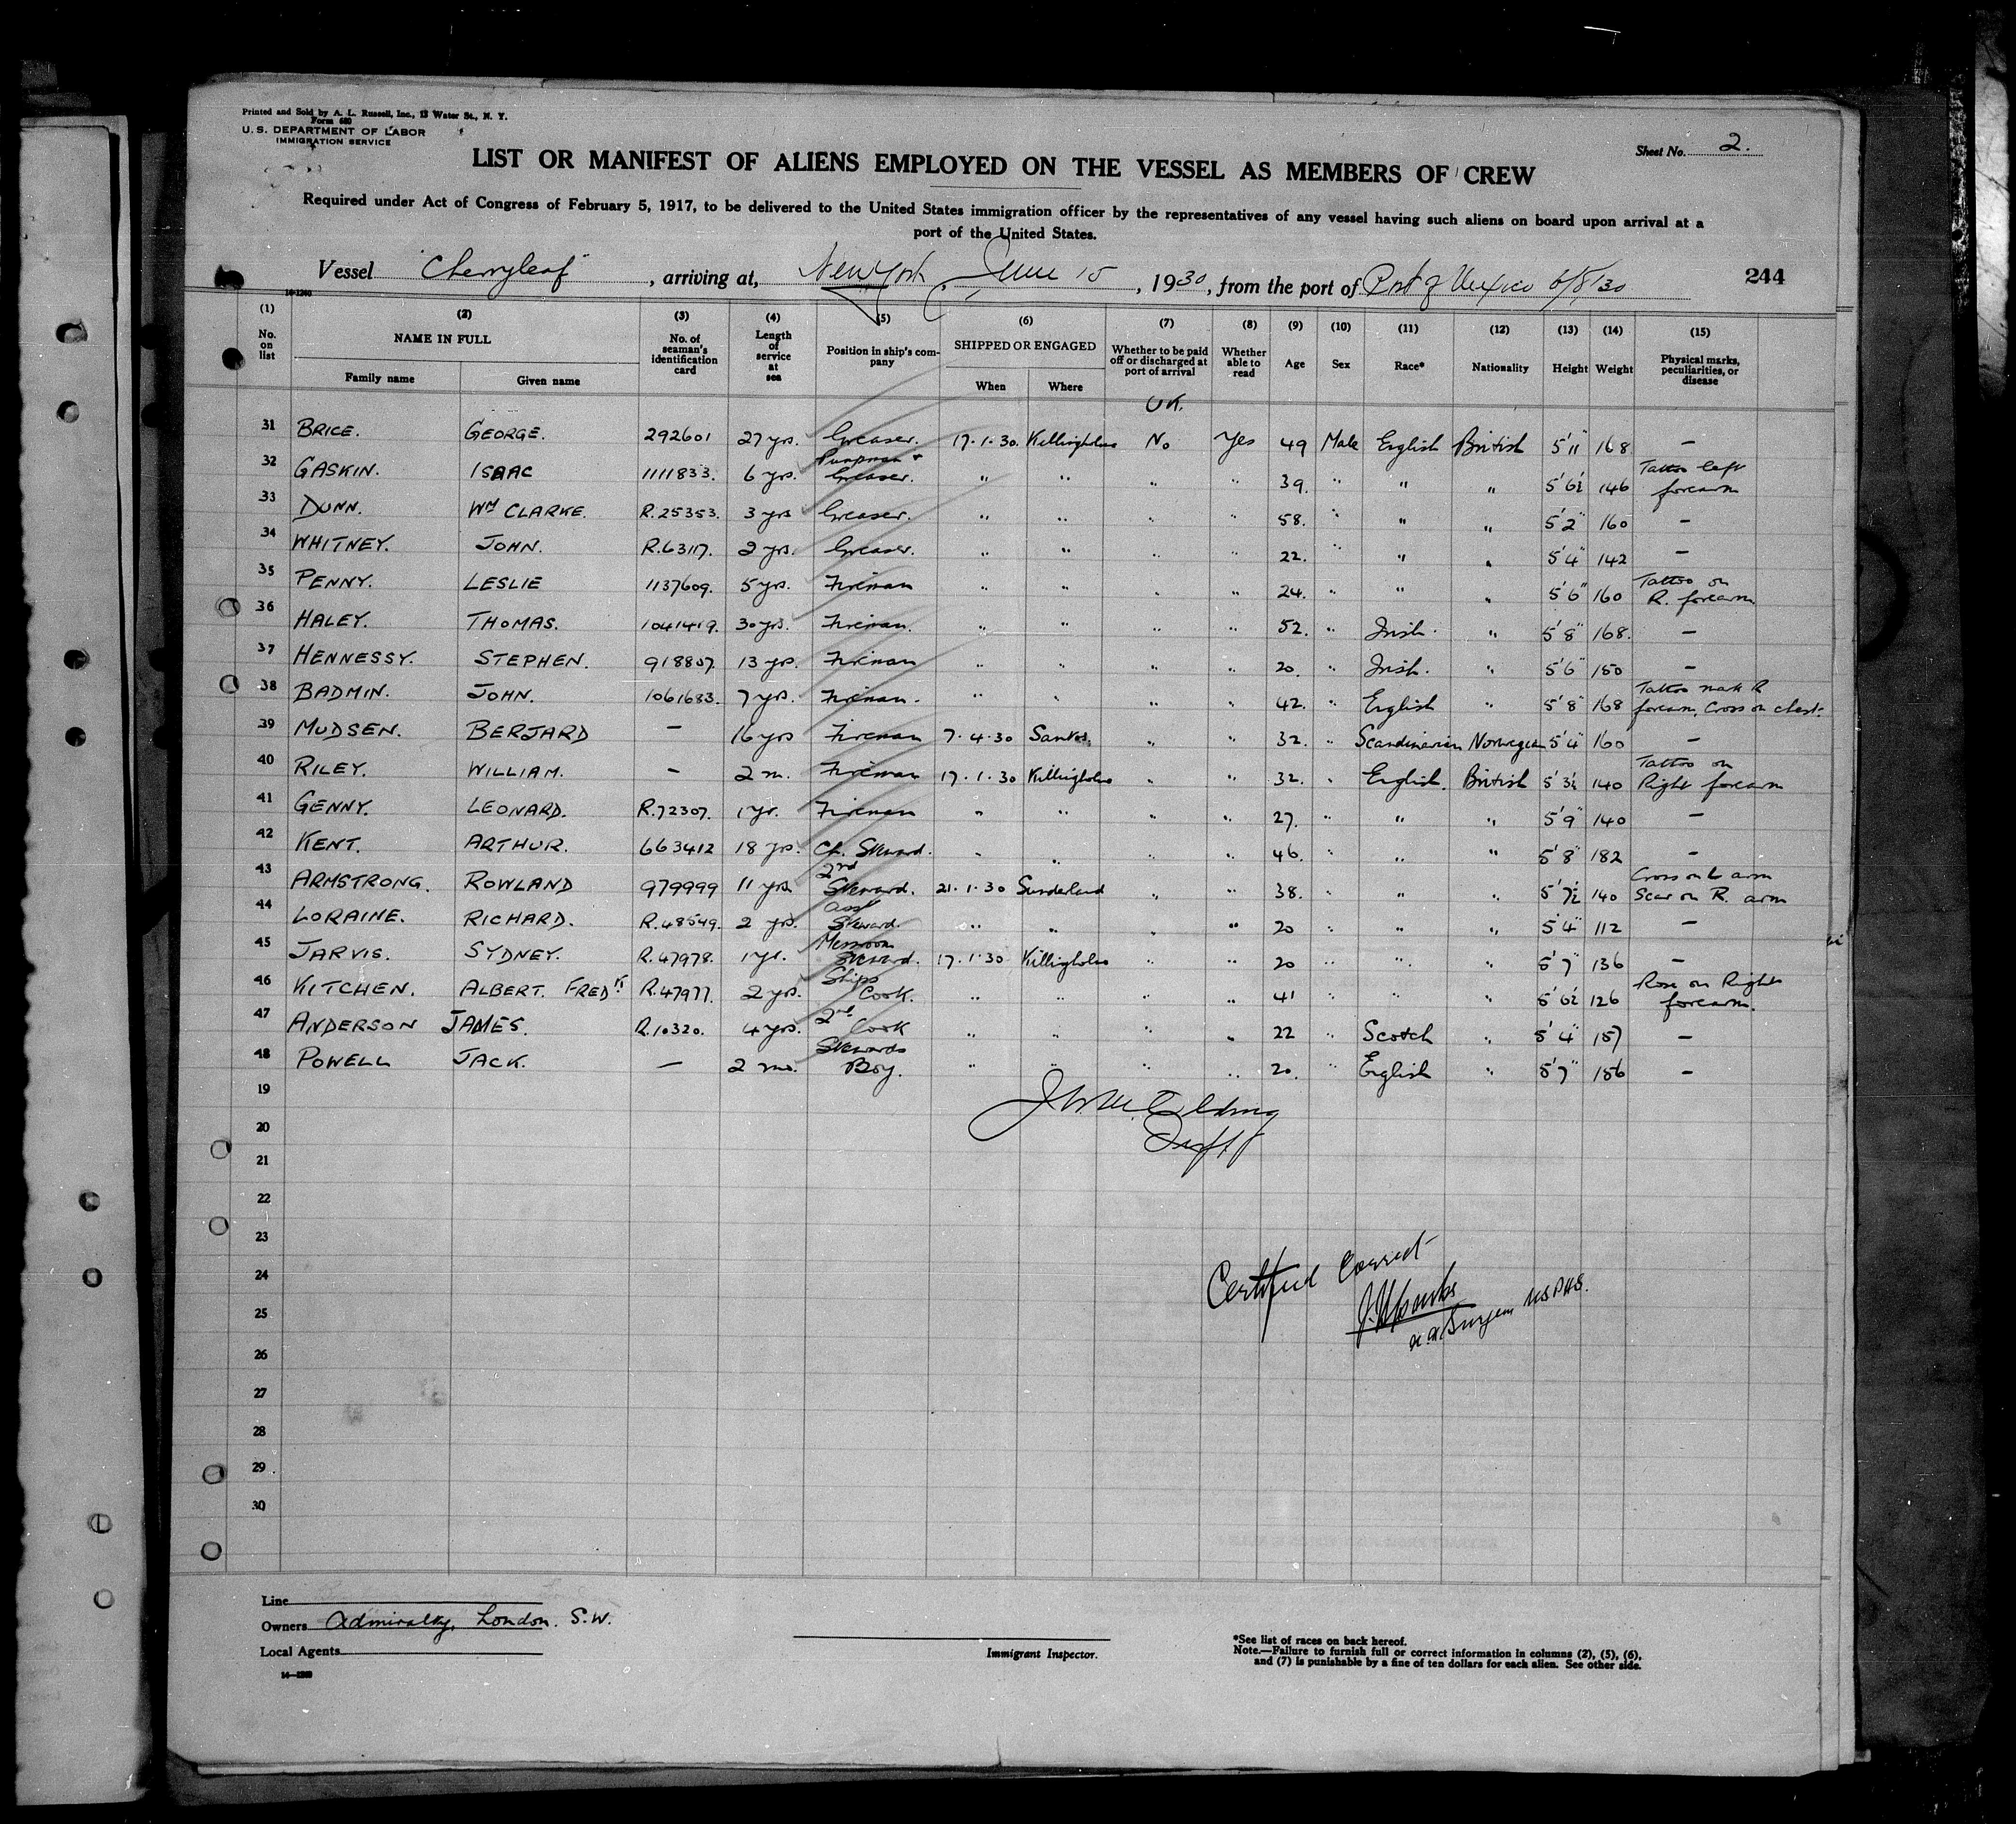 Printed and Sold by A. L. Russell, Inc., 13 Water St., N. Y.
Form 680
U. S. DEPARTMENT OF LABOR
IMMIGRATION SERVICE
Sheet No. 2.
LIST OR MANIFEST OF ALIENS EMPLOYED ON THE VESSEL AS MEMBERS OF CREW
Required under Act of Congress of February 5, 1917, to be delivered to the United States immigration officer by the representatives of any vessel having such aliens on board upon arrival at a
port of the United States.
Vessel "Cherryleaf", arriving at, New York, June 15, 1930, from the port of Port of Mexico 6/8/30
244
14-1240
(1) No. on list
(2) NAME IN FULL
Family name Given name
(3) No. of seaman's identification card
(4) Length of service at sea
(5) Position in ship's company
(6) SHIPPED OR ENGAGED
When Where
(7) Whether to be paid off or discharged at port of arrival
(8) Whether able to read
(9) Age
(10) Sex
(11) Race*
(12) Nationality
(13) Height
(14) Weight
(15) Physical marks, peculiarities, or disease
UK.
31 BRICE. GEORGE. 292601 27 yrs. Greaser. 17.1.30. Killingholme No Yes 49 Male English British 5'11 168 —
32 GASKIN. ISAAC 1111833. 6 yrs. Pumpman + Greaser. " " " " 39. " " " 5'6½ 146 Tattoo left forearm
33 DUNN. Wm CLARKE. R.25353. 3 yrs Greaser. " " " " 58. " " " 5'2" 160 —
34 WHITNEY. JOHN. R.63117. 2 yrs. Greaser. " " " " 22. " " " 5'4" 142 —
35 PENNY. LESLIE 1137609. 5 yrs. Fireman " " " " 24. " " " 5'6" 160 Tattoo on R. forearm
36 HALEY. THOMAS. 1041419. 30 yrs. Fireman. " " " " 52. " Irish. " 5'8" 168. —
37 HENNESSY. STEPHEN. 918807. 13 yrs. Fireman " " " " 20. " Irish. " 5'6" 150 —
38 BADMIN. JOHN. 1061683. 7 yrs. Fireman. " " " " 42. " English " 5'8" 168 Tattoo mark R forearm, Cross on chest.
39 MUDSEN. BERJARD — 16 yrs Fireman 7.4.30 Santos. " " 32. " Scandinavian Norwegian 5'4" 160 —
40 RILEY. WILLIAM. — 2 m. Fireman 17.1.30 Killingholme " " 32. " English. British 5'3½ 140 Tattoo on Right forearm
41 GENNY. LEONARD. R.72307. 1 yr. Fireman " " " " 27. " " " 5'9" 140 —
42 KENT. ARTHUR. 663412 18 yrs. Cf. Steward. " " " " 46. " " " 5'8" 182 —
43 ARMSTRONG. ROWLAND 979999 11 yrs. 2nd Steward. 21.1.30 Sunderland " " 38. " " " 5'7½ 140 Cross on L arm Scar on R. arm
44 LORAINE. RICHARD. R.48549. 2 yrs. Asst Steward. " " " " 20 " " " 5'4" 112 —
45 JARVIS. SYDNEY. R.47978. 1 yr. Messroom Steward. 17.1.30 Killingholme " " 20 " " " 5'7" 136 —
46 KITCHEN. ALBERT. FREDK R.47977. 2 yrs. Ships Cook. " " " " 41 " " " 5'6½ 126 Rose on Right forearm.
47 ANDERSON JAMES. R.10320. 4 yrs. 2nd Cook " " " " 22 " Scotch " 5'4" 157 —
48 POWELL JACK. — 2 mo. Stewards Boy. " " " " 20. " English " 5'7" 156 —
19
20
21
22
23
24
25
26
27
28
29
30
Certified Correct
Surgeon USPHS.
Line
Owners Admiralty, London. S.W.
Local Agents
14—1240
Immigrant Inspector.
*See list of races on back hereof.
Note.—Failure to furnish full or correct information in columns (2), (5), (6),
and (7) is punishable by a fine of ten dollars for each alien. See other side.